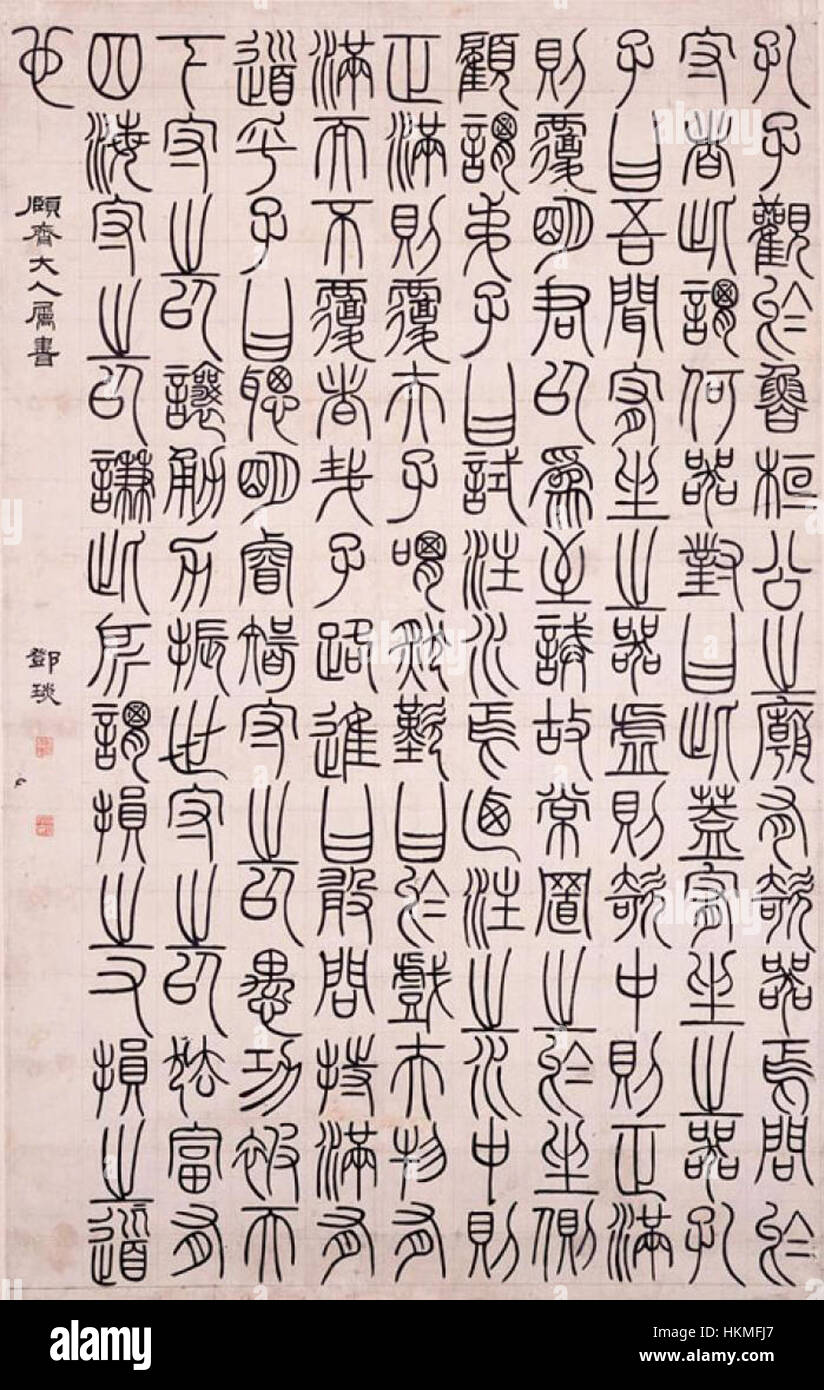 孔子觀於魯桓公之廟有欹器焉問於
守者此謂何器對曰此蓋宥坐之器孔
子曰吾聞宥坐之器虛則欹中則正滿
則覆明君以為至誡故常置之於坐側
顧謂弟子曰試注水焉迺注之水中則
正滿則覆夫子喟然歎曰於戲夫物有
滿而不覆者哉子路進曰敢問持滿有
道乎子曰聰明睿智守之以愚功被天
下守之以讓勇力振世守之以怯富有
四海守之以謙此所謂損之又損之道
也
頤齊大人屬書 鄧琰
alamy
Image ID: HKMFJ7
www.alamy.com